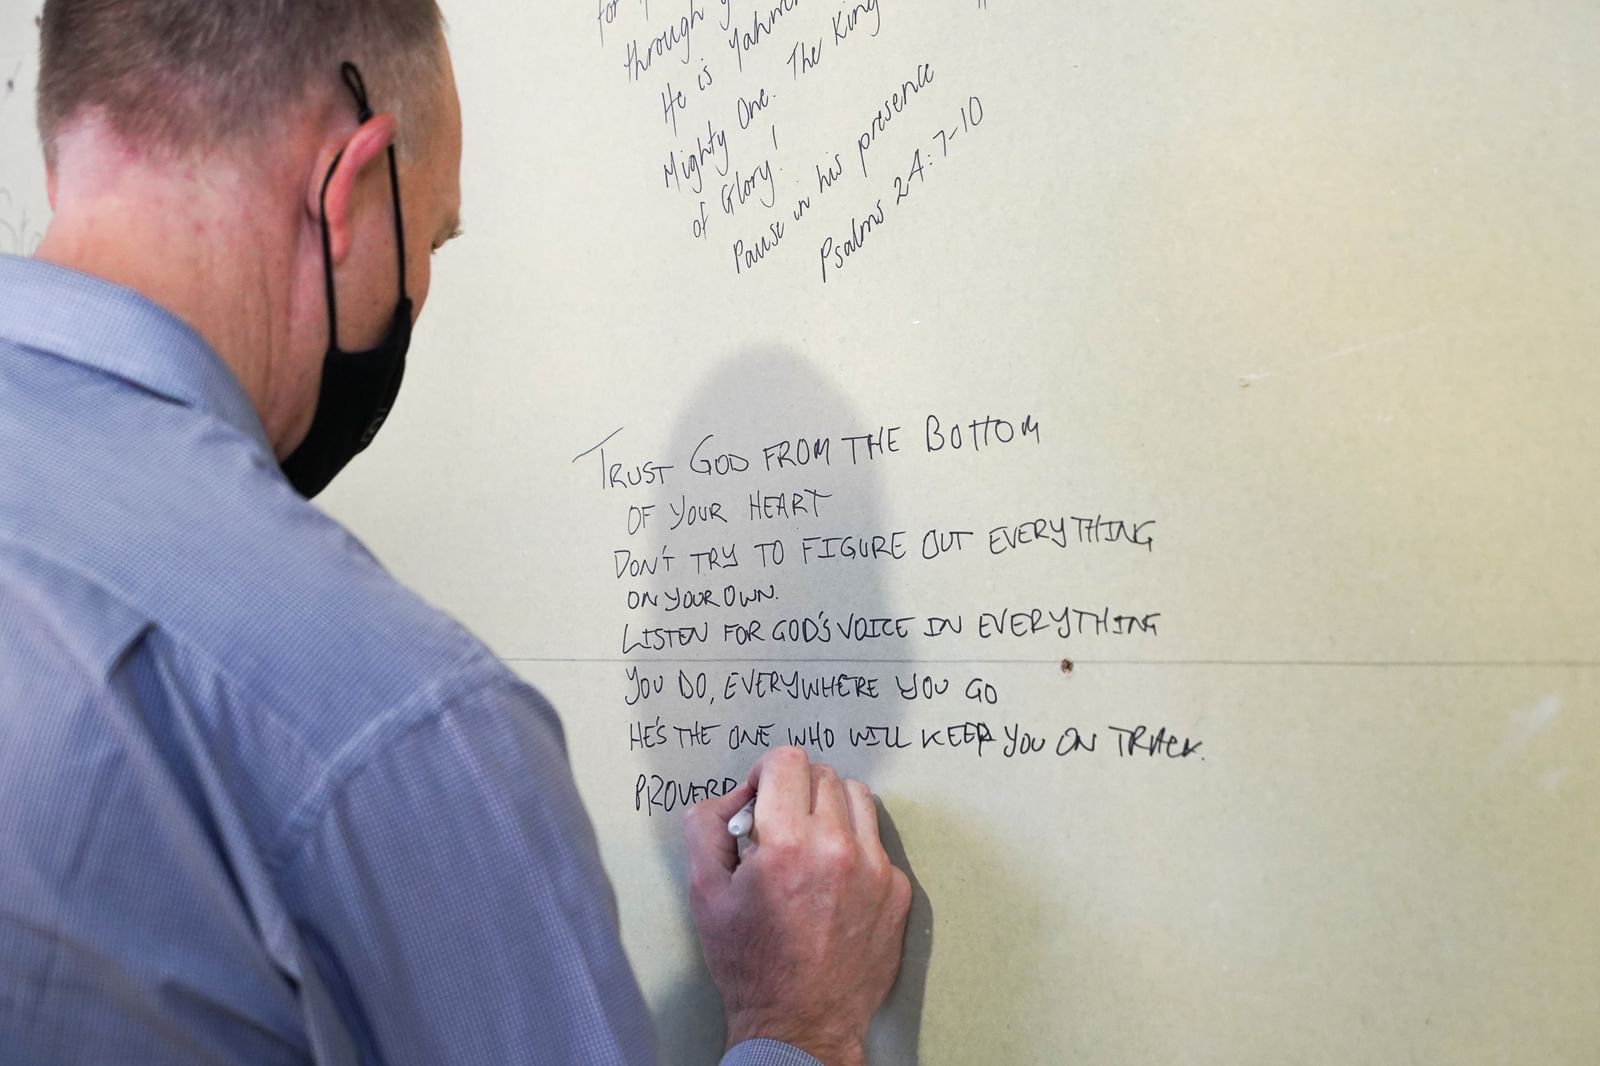 for
through
He is Yahweh
Mighty One. The King
of Glory!
Pause in his presence
Psalms 24:7-10
TRUST GOD FROM THE BOTTOM
OF YOUR HEART
DON'T TRY TO FIGURE OUT EVERYTHING
ON YOUR OWN.
LISTEN FOR GOD'S VOICE IN EVERYTHING
YOU DO, EVERYWHERE YOU GO
HE'S THE ONE WHO WILL KEEP YOU ON TRACK.
PROVERB